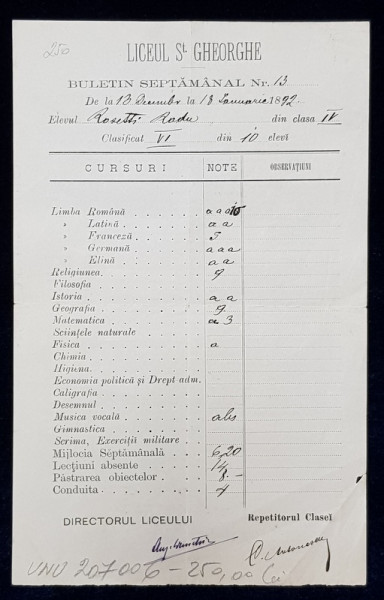 250
LICEUL St. GHEORGHE
BULETIN SEPTĂMÂNAL Nr. 13
De la 13 Decembr la 18 Ianuarie 1892.
Elevul Rosetti Radu din clasa IV
Clasificat VI din 10 elevi
CURSURI NOTE OBSERVAȚIUNI
Limba Română a a 10
» Latină a a
» Franceză
» Germană a a a
» Elină a a
Religiunea 9
Filosofia
Istoria a a
Geografia 9
Matematica a 3
Sciințele naturale
Fisica a
Chimia
Higiena
Economia politică și Drept adm.
Caligrafia
Desemnul
Musica vocală abs
Gimnastica
Scrima, Exerciții militare
Mijlocia Septămânală 6,20
Lecțiuni absente 14
Păstrarea obiectelor 8.—
Conduita
DIRECTORUL LICEULUI Repetitorul Clasei
VNU 207006 – 250,00 lei